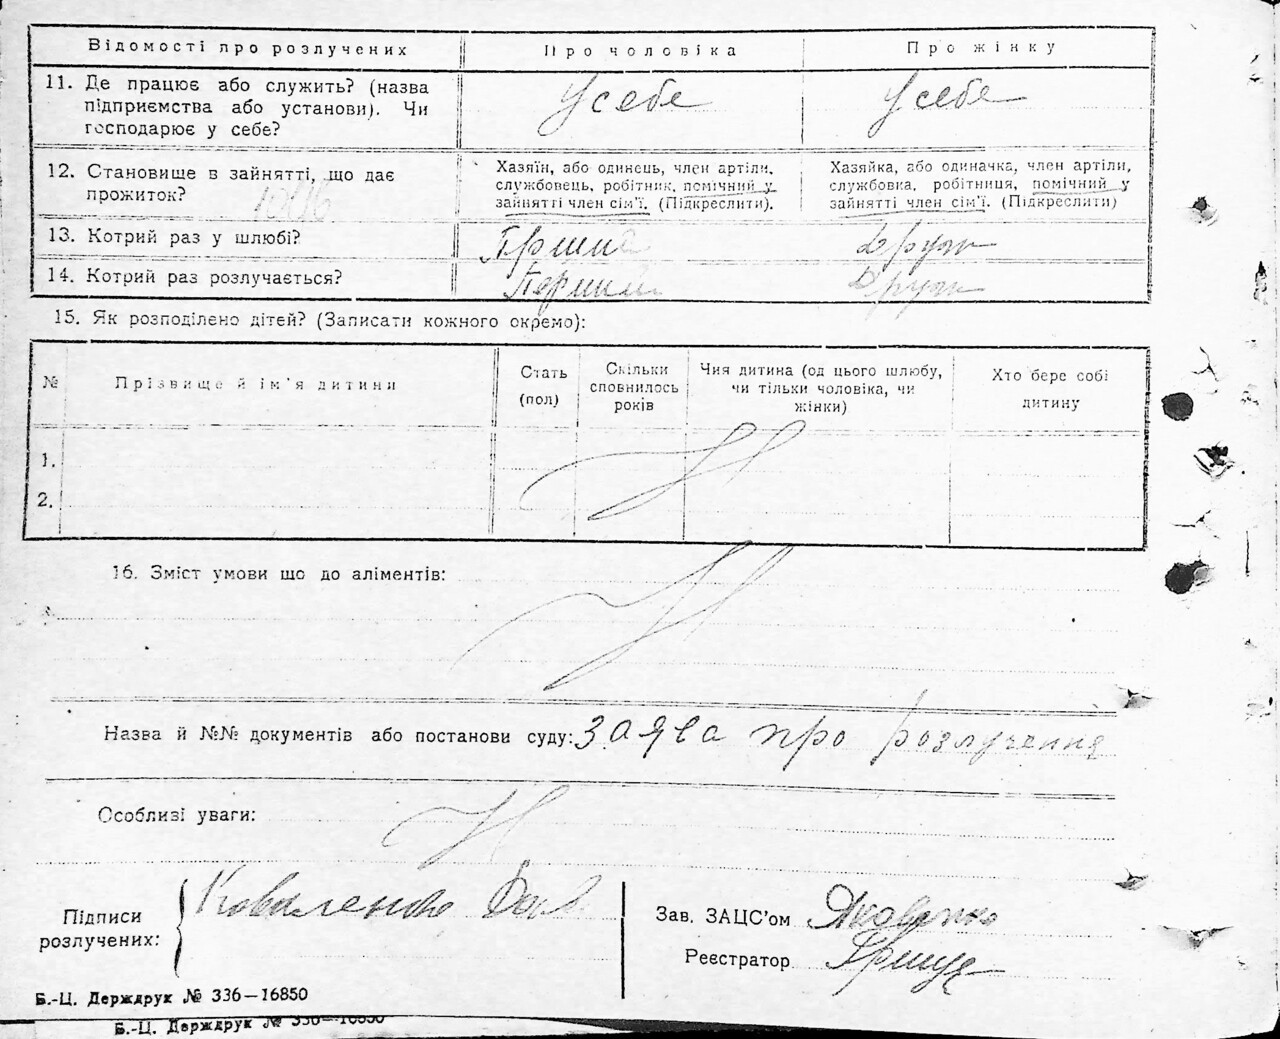 Відомості про розлучених Про чоловіка Про жінку
11. Де працює або служить? (назва
підприємства або установи). Чи
господарює у себе?
У себе У себе
12. Становище в зайнятті, що дає
прожиток?
Хазяїн, або одинець, член артіли,
службовець, робітник, помічний у
зайнятті член сім'ї. (Підкреслити).
Хазяйка, або одиначка, член артіли,
службовка, робітниця, помічний у
зайнятті член сім'ї. (Підкреслити)
13. Котрий раз у шлюбі?
14. Котрий раз розлучається? Перший
15. Як розподілено дітей? (Записати кожного окремо):
№ Прізвище й ім'я дитини
Стать
(пол)
Скільки
сповнилось
років
Чия дитина (од цього шлюбу,
чи тільки чоловіка, чи
жінки)
Хто бере собі
дитину
1.
2.
16. Зміст умови що до аліментів:
Назва й №№ документів або постанови суду: заява про розлучення
Особливі уваги:
Підписи
розлучених:
Коваленко
Зав. ЗАЦС'ом
Реєстратор
Б.-Ц. Держдрук № 336—16850
Б.-Ц. Держдрук № 336—16850